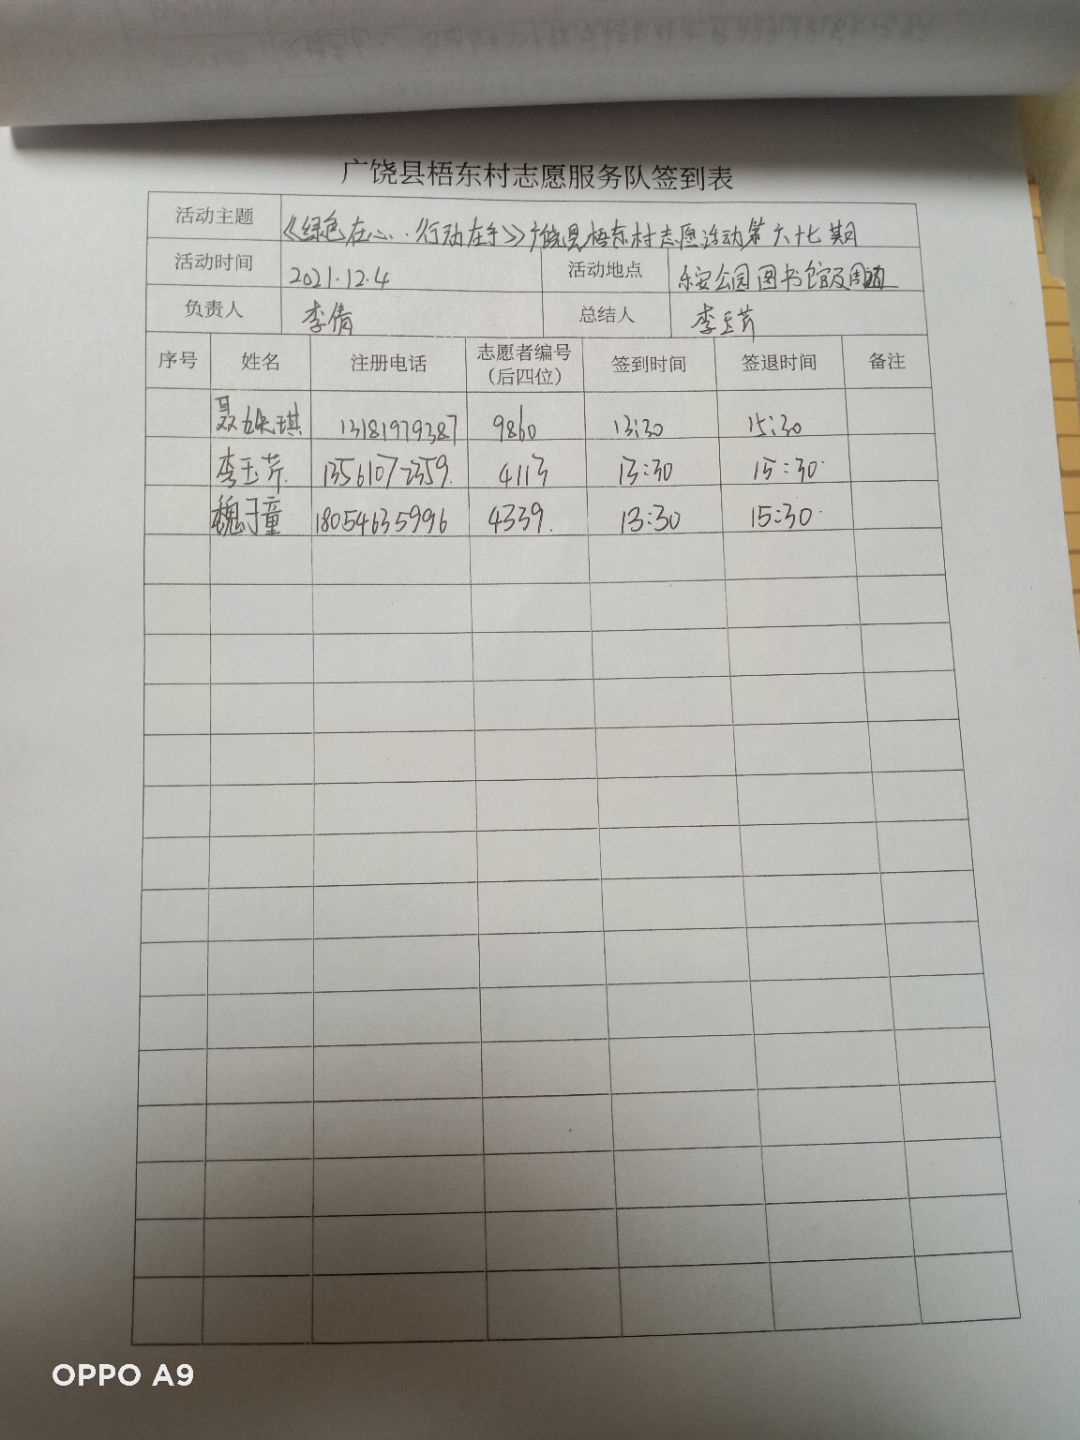 广饶县梧东村志愿服务队签到表
活动主题 《绿色在心··行动在手》广饶县梧东村志愿活动第六十七期
活动时间 2021.12.4 活动地点 乐安公园图书馆及周边
负责人 李倩 总结人 李玉芹
序号 姓名 注册电话 志愿者编号（后四位） 签到时间 签退时间 备注
聂 琪 13181979387 9860 13:30 15:30
李玉芹 13561072359 4113 13:30 15:30
魏子童 18054635996 4339 13:30 15:30
OPPO A9